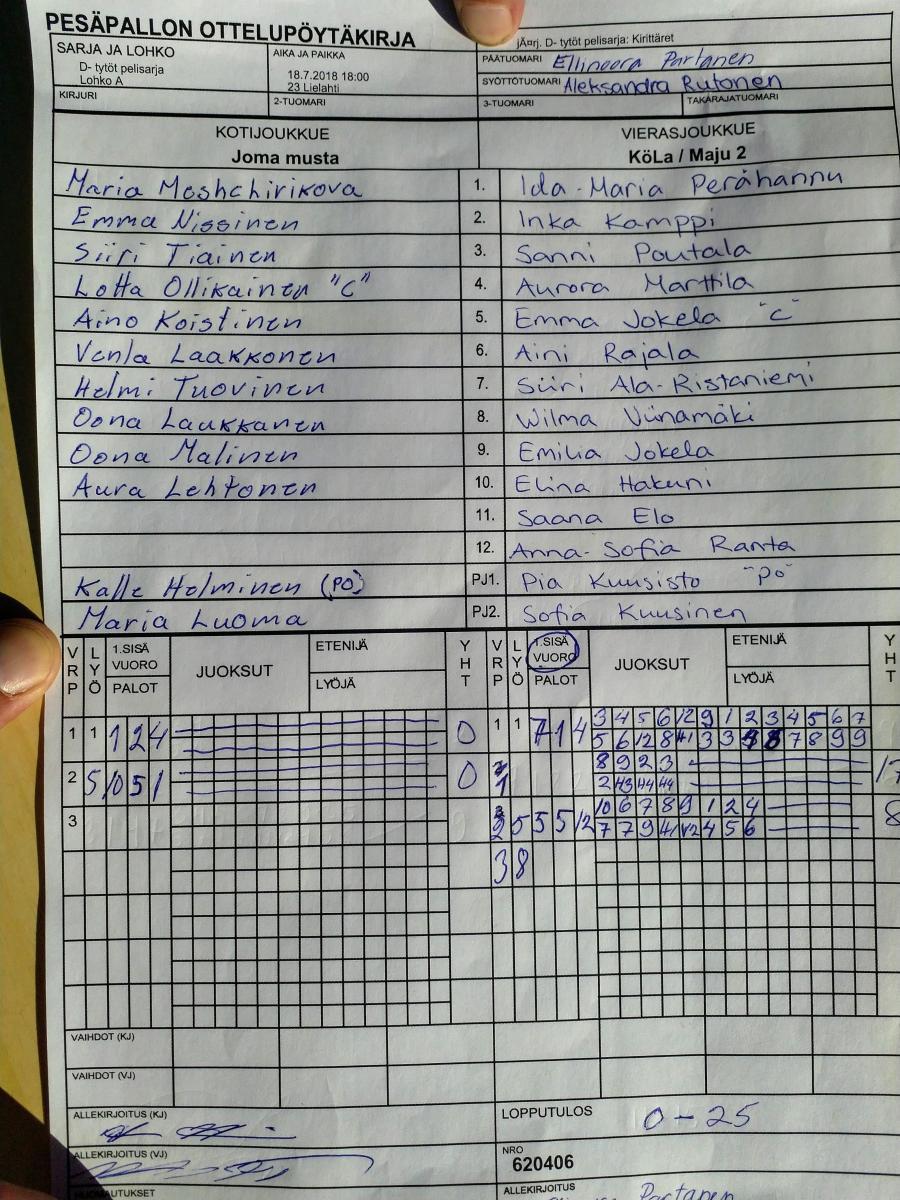 PESÄPALLON OTTELUPÖYTÄKIRJA
jÄ¤rj. D- tytöt pelisarja: Kirittäret
SARJA JA LOHKO
D- tytöt pelisarja
Lohko A
AIKA JA PAIKKA
18.7.2018 18:00
23 Lielahti
PÄÄTUOMARI Ellinoora Partanen
SYÖTTÖTUOMARI Aleksandra Rutonen
KIRJURI
2-TUOMARI
3-TUOMARI
TAKARAJATUOMARI
KOTIJOUKKUE
Joma musta
VIERASJOUKKUE
KöLa / Maju 2
Maria Moshchirikova 1. Ida-Maria Perähannu
Emma Nissinen 2. Inka Kamppi
Siiri Tiainen 3. Sanni Poutala
Lotta Ollikainen "C" 4. Aurora Marttila
Aino Koistinen 5. Emma Jokela "C"
Venla Laakkonen 6. Aini Rajala
Helmi Tuovinen 7. Siiri Ala-Ristaniemi
Oona Laukkanen 8. Wilma Viinamäki
Oona Malinen 9. Emilia Jokela
Aura Lehtonen 10. Elina Hakuni
11. Saana Elo
12. Anna-Sofia Ranta
Kalle Holminen (PO) PJ1. Pia Kuusisto "PO"
Maria Luoma PJ2. Sofia Kuusinen
VRP LYÖ 1.SISÄ VUORO PALOT JUOKSUT ETENIJÄ LYÖJÄ YHT VRP LYÖ 1.SISÄ VUORO PALOT JUOKSUT ETENIJÄ LYÖJÄ YHT
1 1 1 2 4 0 1 1 7 1 4 3 4 5 6 12 9 1 2 3 4 5 6 7
5 6 12 8 3 3 7 8 9 9
2 5 10 5 1 0 1 8 9 2 3 17
3 2 5 5 5 12 10 6 7 8 9 1 2 4 8
7 7 9 4 2 4 5 6
3 8
VAIHDOT (KJ)
VAIHDOT (VJ)
ALLEKIRJOITUS (KJ)
LOPPUTULOS 0 - 25
ALLEKIRJOITUS (VJ)
NRO
620406
HUOMAUTUKSET
ALLEKIRJOITUS
Partanen